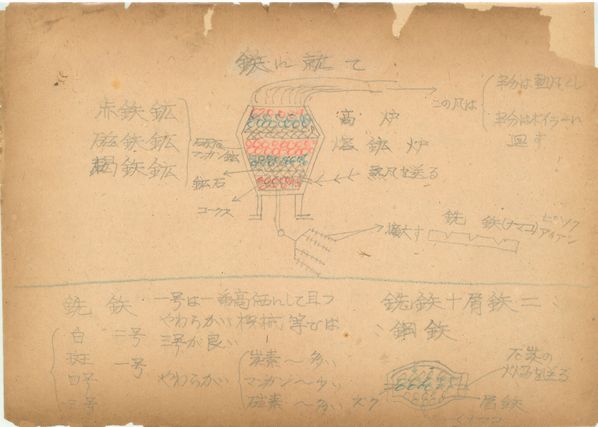 鉄に就て
赤鉄鉱
磁鉄鉱
褐鉄鉱
マンガン鉱
鉱石
コークス
高炉
熔鉱炉
熱風を送る
この凡は
半分は熱風とし
半分はボイラーへ
廻す
拡大す
銑鉄(ナマコ)
アイアン
銑鉄
白 二号
斑 一号
四号
三号
一号は一番高価にして且つ
やわらかい 機械等では
三号が良い
やわらかい
炭素〜多い
マンガン〜少い
硅素〜多い
銑鉄十屑鉄ニ
鋼鉄
石炭の
屑鉄